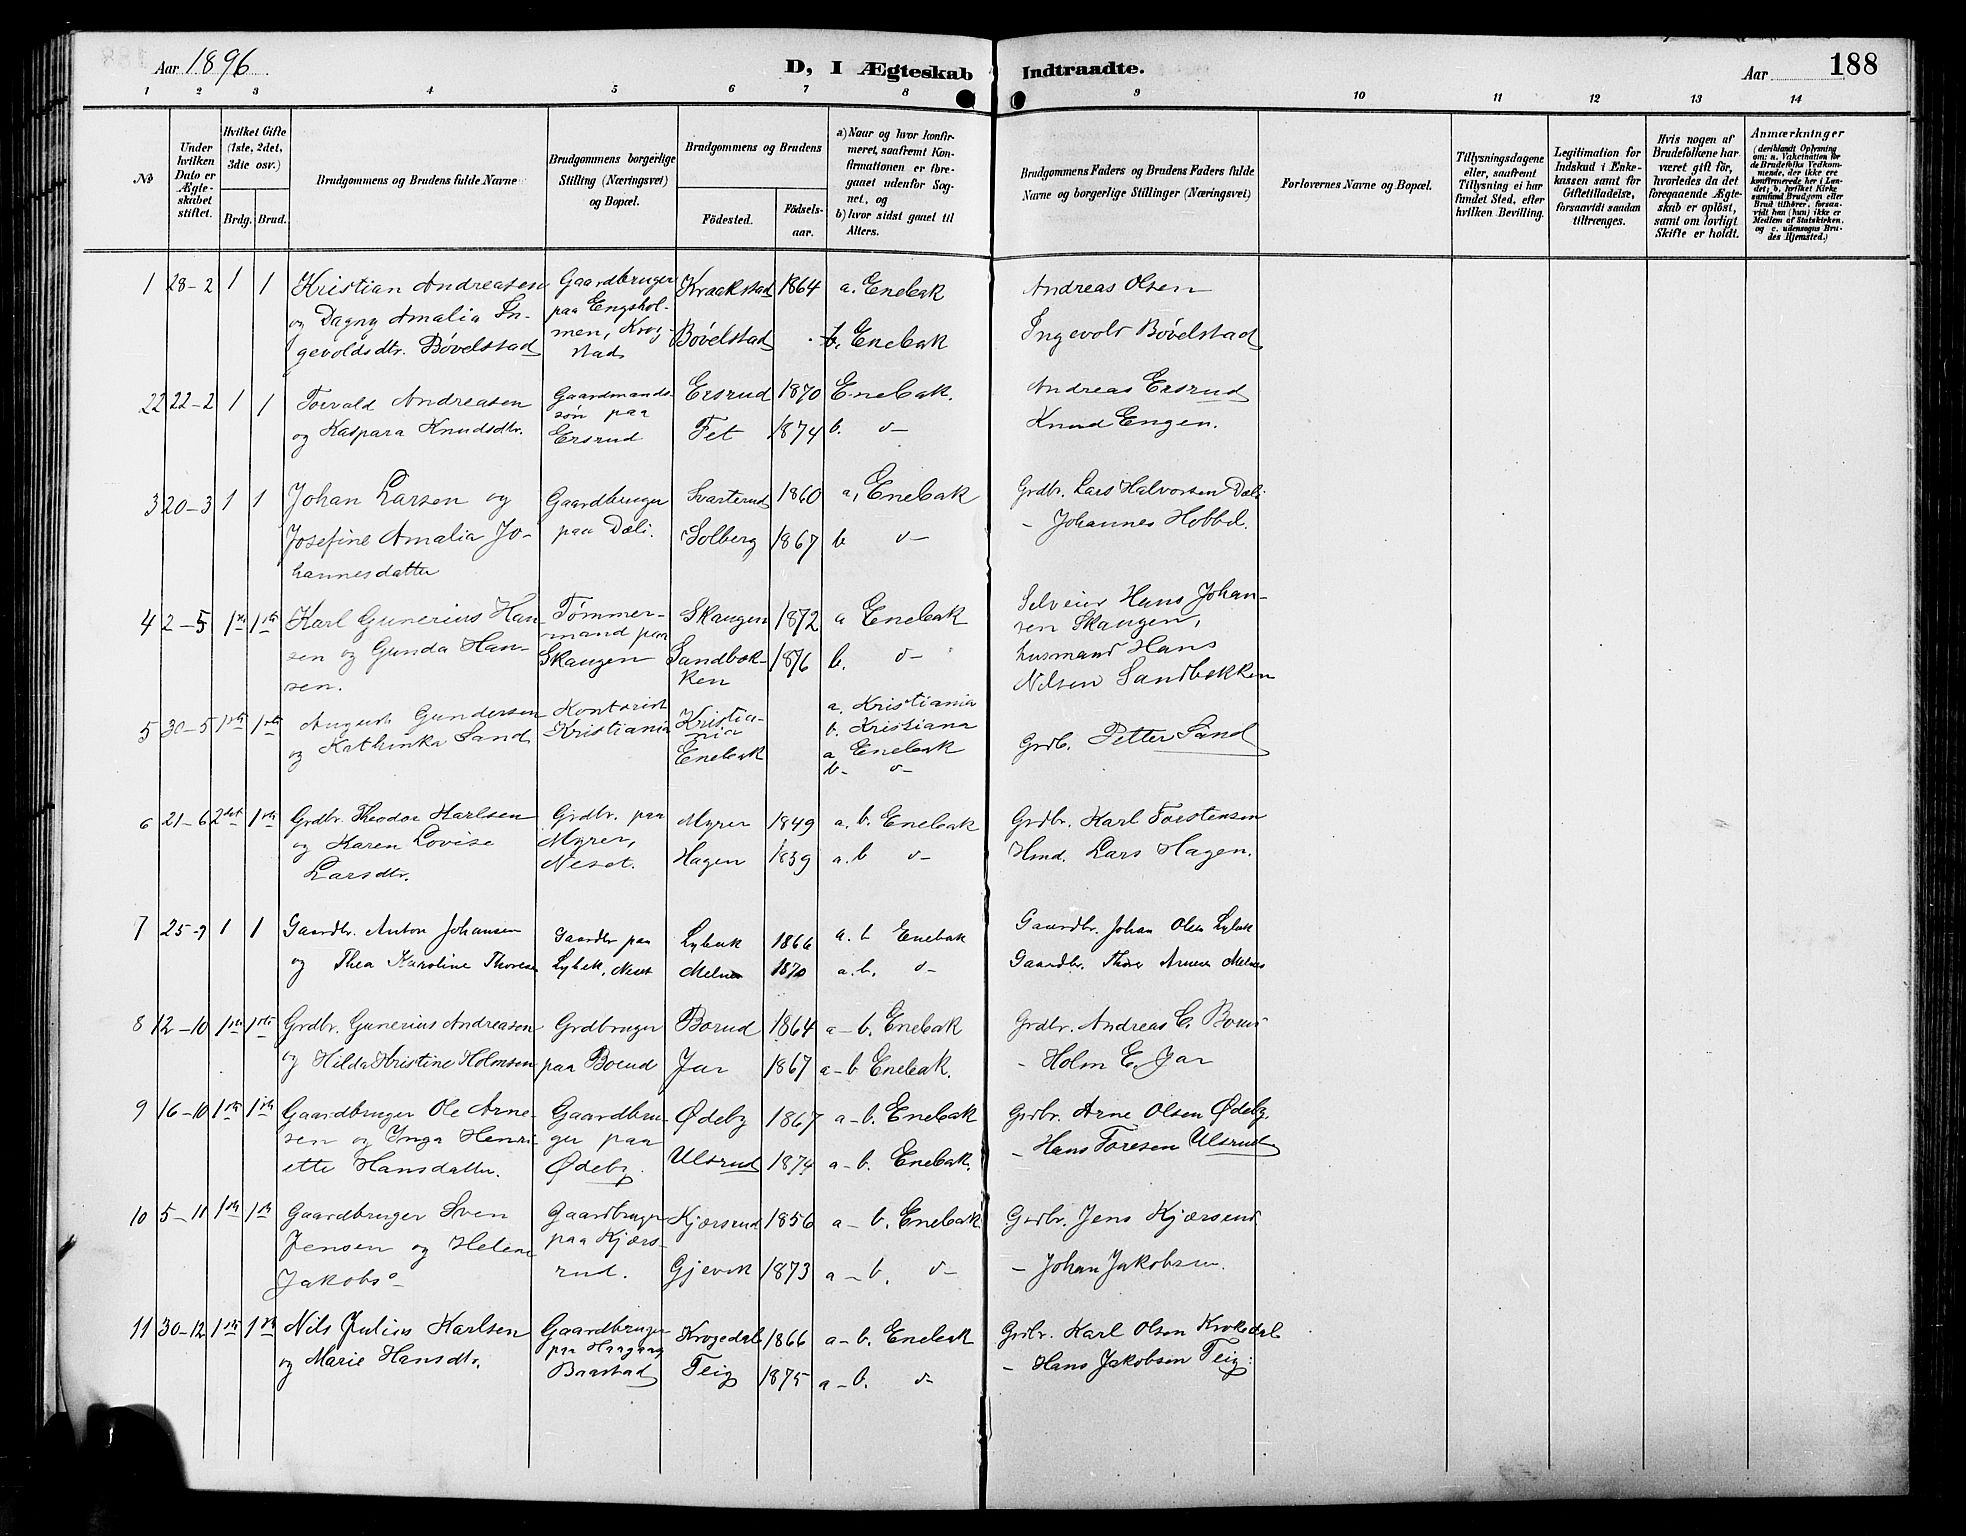 Aar 1896.
D, I Ægteskab Indtraadte.
Aar 188
1 2 3 4 5 6 7 8 9 10 11 12 13 14
No
Under hvilken Dato er Ægteskabet stiftet.
Hvilket Gifte (1ste, 2det, 3die osv.)
Brdg. Brud.
Brudgommens og Brudens fulde Navne
Brudgommens borgerlige Stilling (Næringsvei) og Bopæl.
Brudgommens og Brudens
Födested. Födselsaar.
a) Naar og hvor konfirmeret, saafremt Konfirmationen er foregaaet udenfor Sognet, og
b) hvor sidst gaaet til Alters.
Brudgommens Faders og Brudens Faders fulde Navne og borgerlige Stillinger (Næringsvei)
Forlovernes Navne og Bopæl.
Tillysningsdagene eller, saafremt Tillysning ei har fundet Sted, efter hvilken Bevilling.
Legitimation for Indskud i Enkekassen samt for Giftetilladelse, forsaavidt saadan tiltrænges.
Hvis nogen af Brudefolkene har været gift för, hvorledes da det foregaaende Ægteskab er oplöst, samt om lovligt Skifte er holdt.
Anmærkninger (deriblandt Oplysning om: a. Vakcination for de Brudefolks Vedkommende, der ikke ere konfirmerede her i Landet; b. hvilket Kirkesamfund Brudgom eller Brud tilhörer, forsaavidt han (hun) ikke er Medlem af Statskirken, og c. udensogns Brudes Hjemsted.)
1 28-2 1 1 Kristian Andreasen Gaardbruger Kraakstad 1864 a. Enebak Andreas Olsen
og Dagny Amalia In- paa Engshol-
gevoldsdtr. Bövelstad men, Krog- Bövelstad b. Enebak Ingevold Bövelstad
stad
22 22-2 1 1 Torvald Andreasen Gaardmands- Ersrud 1870 Enebak. Andreas Ersrud
og Kaspara Knudsdtr. søn paa Fet 1874 b. d- Knud Engen.
Ersrud
3 20-3 1 1 Johan Larsen og Gaardbruger Svarterud 1860 a, Enebak Grdbr. Lars Halvorsen Dæli
Josefine Amalia Jo- paa Dæli. Solberg 1867 b d- - Johannes Hobbel.
hannesdatter
4 2-5 1ste 1ste Karl Gunerius Han- Tømmer- Skaugen 1872 a Enebak Selveier Hans Johan-
sen og Gunda Han- mand paa sen Skaugen,
sen. Skaugen Sandbæk- 1876 b. d- husmand Hans
ken Nilsen Sandbækken
5 30-5 1ste 1ste August Gundersen Kontorist Kristia- a. Kristiania
og Kathinka Sand Kristiania nia b. Kristiana
Enebak a Enebak Grdb. Petter Sand
b- d-
6 21-6 2det 1ste Grdbr. Theodor Karlsen Grdbr. paa Myrer 1849 a. b. Enebak Grdbr. Karl Torstensen
og Karen Lovise Myrer, Hagen 1839 a. b d- Hmd. Lars Hagen.
Larsdtr. Neset.
7 25-9 1 1 Gaardbr. Anton Johansen Gaardbr paa Lybæk 1866 a. b Enebak Gaardbr. Johan Olsen Lybæk
og Thea Karoline Thoresen Lybæk, Neset Melnes 1870 a. b. d- Gaardbr. Thore Arnesen Melnes
8 12-10 1ste 1ste Grdbr. Gunerius Andreasen Grdbruger Borud 1864 a-b. Enebak Grdbr. Andreas C. Borud
og Hilda Kristine Holmsen paa Borud Jar 1867 a-b Enebak. - Holm E. Jar
9 16-10 1ste 1ste Gaardbruger Ole Arne- Gaardbru- Ødeby 1867 a-b. Enebak Grdbr. Arne Olsen Ødeby.
sen og Inga Henri- ger paa Ulsrud 1874 a-b. Enebak. - Hans Toresen Ulsrud
ette Hansdatter. Ødeby.
10 5-11 1ste 1ste Gaardbruger Sven Gaardbruger Kjærsrud 1856 a-b. Enebak Grdbr. Jens Kjærsrud
Jensen og Helene paa Kjærs- Gjevik 1873 a-b. d- - Johan Jakobsen.
Jakobs- rud.
11 30-12 1ste 1ste Nils Julius Karlsen Gaardbruger Krogedal 1866 a-b. Enebak Grdbr. Karl Olsen Krokedal
og Marie Hansdtr. paa Haagaag Teig 1875 a-b. d- - Hans Jakobsen Teig.
Baastad